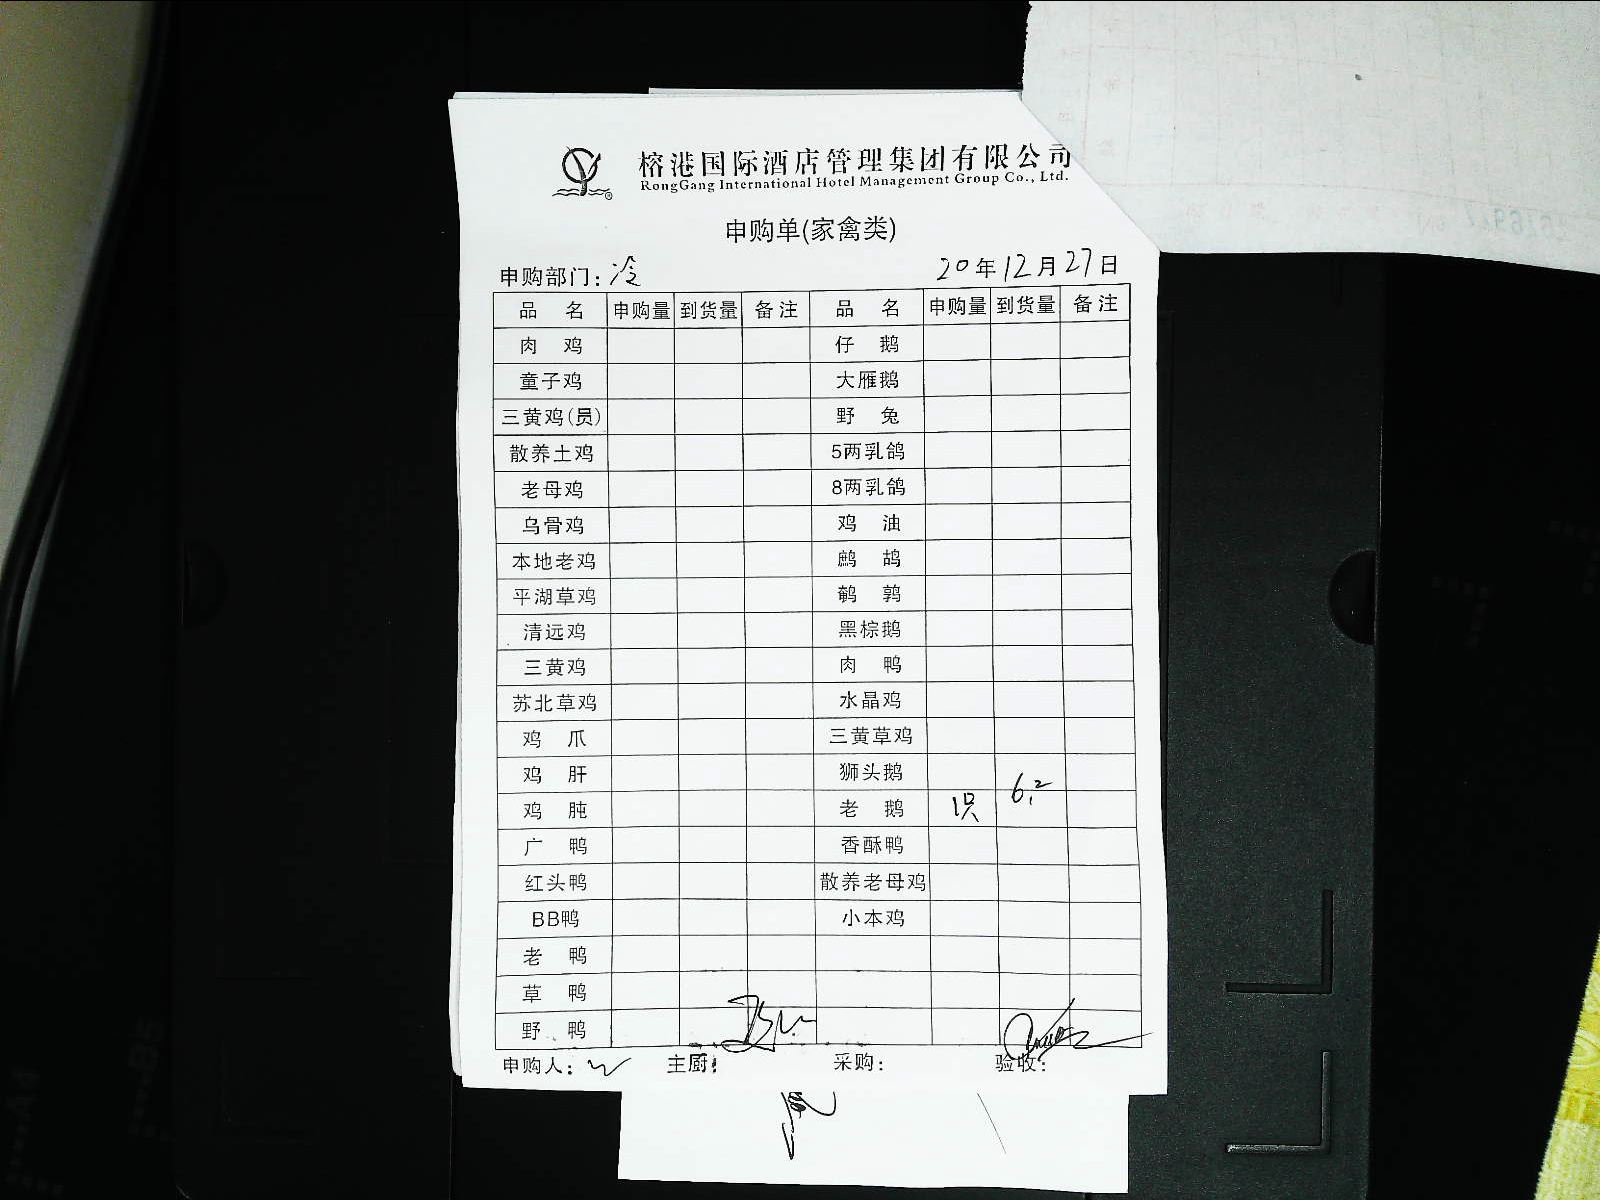 榕港国际酒店管理集团有限公司
RongGang International Hotel Management Group Co., Ltd.
申购单(家禽类)
申购部门：冷 20年12月27日
品名 申购量 到货量 备注 品名 申购量 到货量 备注
肉鸡 仔鹅
童子鸡 大雁鹅
三黄鸡(员) 野兔
散养土鸡 5两乳鸽
老母鸡 8两乳鸽
乌骨鸡 鸡油
本地老鸡 鹧鸪
平湖草鸡 鹌鹑
清远鸡 黑棕鹅
三黄鸡 肉鸭
苏北草鸡 水晶鸡
鸡爪 三黄草鸡
鸡肝 狮头鹅
鸡肫 老鹅 1只 6.2
广鸭 香酥鸭
红头鸭 散养老母鸡
BB鸭 小本鸡
老鸭
草鸭
野鸭
申购人： 主厨： 采购： 验收：